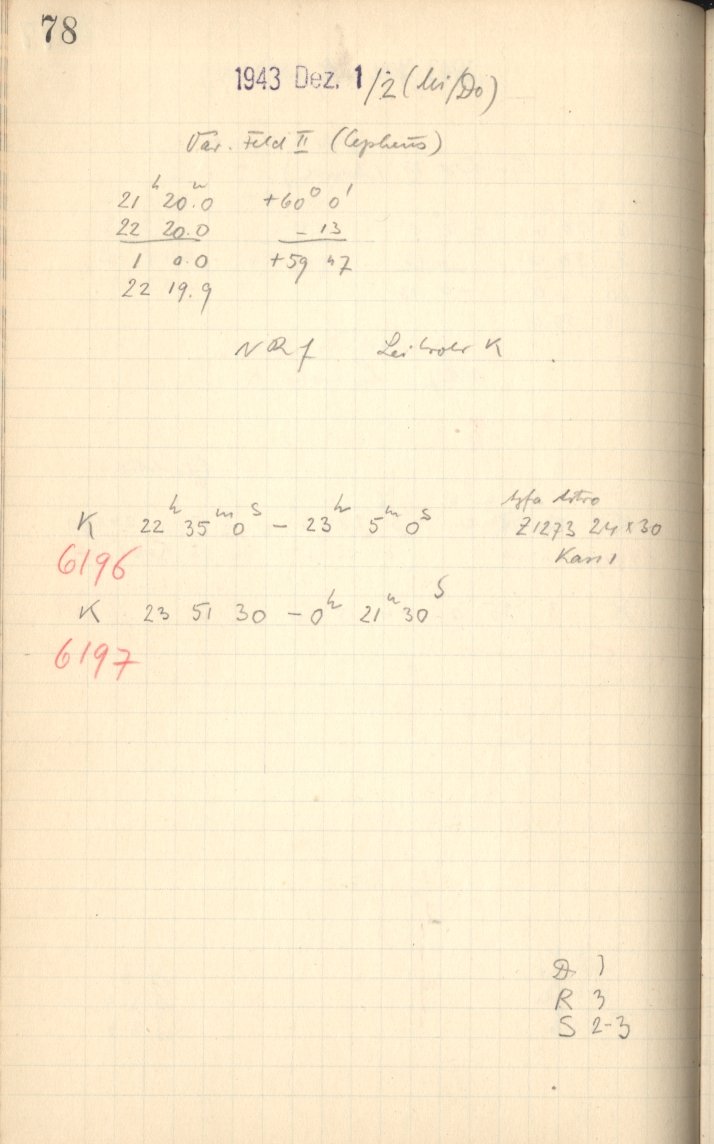 78
1943 Dez. 1/2 (Mi/Do)
Var. Feld II (Cepheus)
21ʰ 20.0ᵐ +60° 0'
22 20.0 - 13
1 0.0 +59 47
22 19.9
Leitrohr K
K 22ʰ 35ᵐ 0ˢ - 23ʰ 5ᵐ 0ˢ
Agfa Astro
Z1273 24x30
Kass 1
6196
K 23 51 30 - 0ʰ 21ᵐ 30ˢ
6197
D 1
R 3
S 2-3